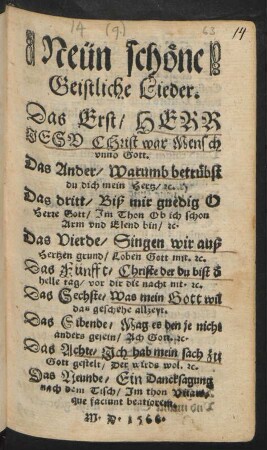 14 (9.) 63
14
Neün schöne
Geistliche Lieder.
Das Erst/ HERR
JESV Christ war Mensch
vnnd Gott.
Das Ander/ Warumb betrübst
du dich mein Hertz/ ꝛc.
Das dritt/ Biß mir gnedig O
Herre Gott/ Im Thon Ob ich schon
Arm vnd Elend bin/ ꝛc.
Das Vierde/ Singen wir auß
Hertzen grund/ Loben Gott mit. ꝛc.
Das Fünfft/ Christe der du bist d
helle tag/ vor dir die nacht mit. ꝛc.
Das Sechste/ Was mein Gott wil
das geschehe allzeyt.
Das Sibende/ Mag es den je nicht
anders gesein/ Ach Gott. ꝛc.
Das Achte/ Ich hab mein sach zu
Gott gestelt/ Der wirds wol. ꝛc.
Das Neunde/ Ein Dancksagung
nach dem Tisch/ Im thon Vitam
que faciunt beatiorem.
M. D. 1566.